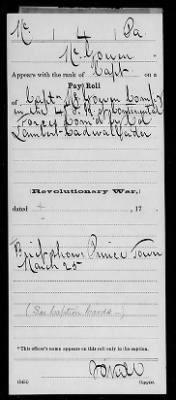 Mc | 4 | Pa
McGowen
Appears with the rank of Capt on a
Pay Roll
of Capt McGowen Comp'y
in the 4 P. R. of Continental
Forces Com'd by Col
Lambert Cadwallader
(Revolutionary War,)
dated , 17
Brief shows Prince Town
March 25
(See Caption Cards.)
*This officer's name appears on this roll only in the caption.
Copyist.